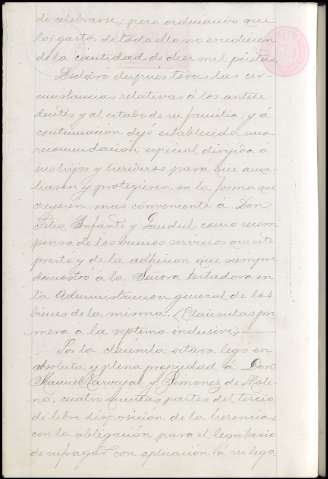 de celebrarse, pero ordenando que
los gastos de todo ello no excedieran
de la cantidad de diez mil pesetas
Declaró despues todas las cir-
cunstancias relativas á los antece-
dentes y al estado de su familia, y á
continuacion dejó establecida una
recomendacion especial dirigida á
sus hijos y herederos para que ama-
ran y protegieran en la forma que
creyesen mas conveniente á Don
Infante y como recom-
pensa de los buenos servicios que le
preste y de la adhesion que siempre
demostró á la Señora testadora en
la Administracion general de los
bienes de la misma. (Cláusulas pri-
mera á la septima inclusive)
Por la cláusula octava legó en
absoluta y plena propiedad á Don
Manuel Carvajal y Jimenez de Moli-
na, cuatro quintas partes del tercio
de libre disposicion de la herencia,
con la obligación para el legatario
de sufragar con aplicacion á su lega-